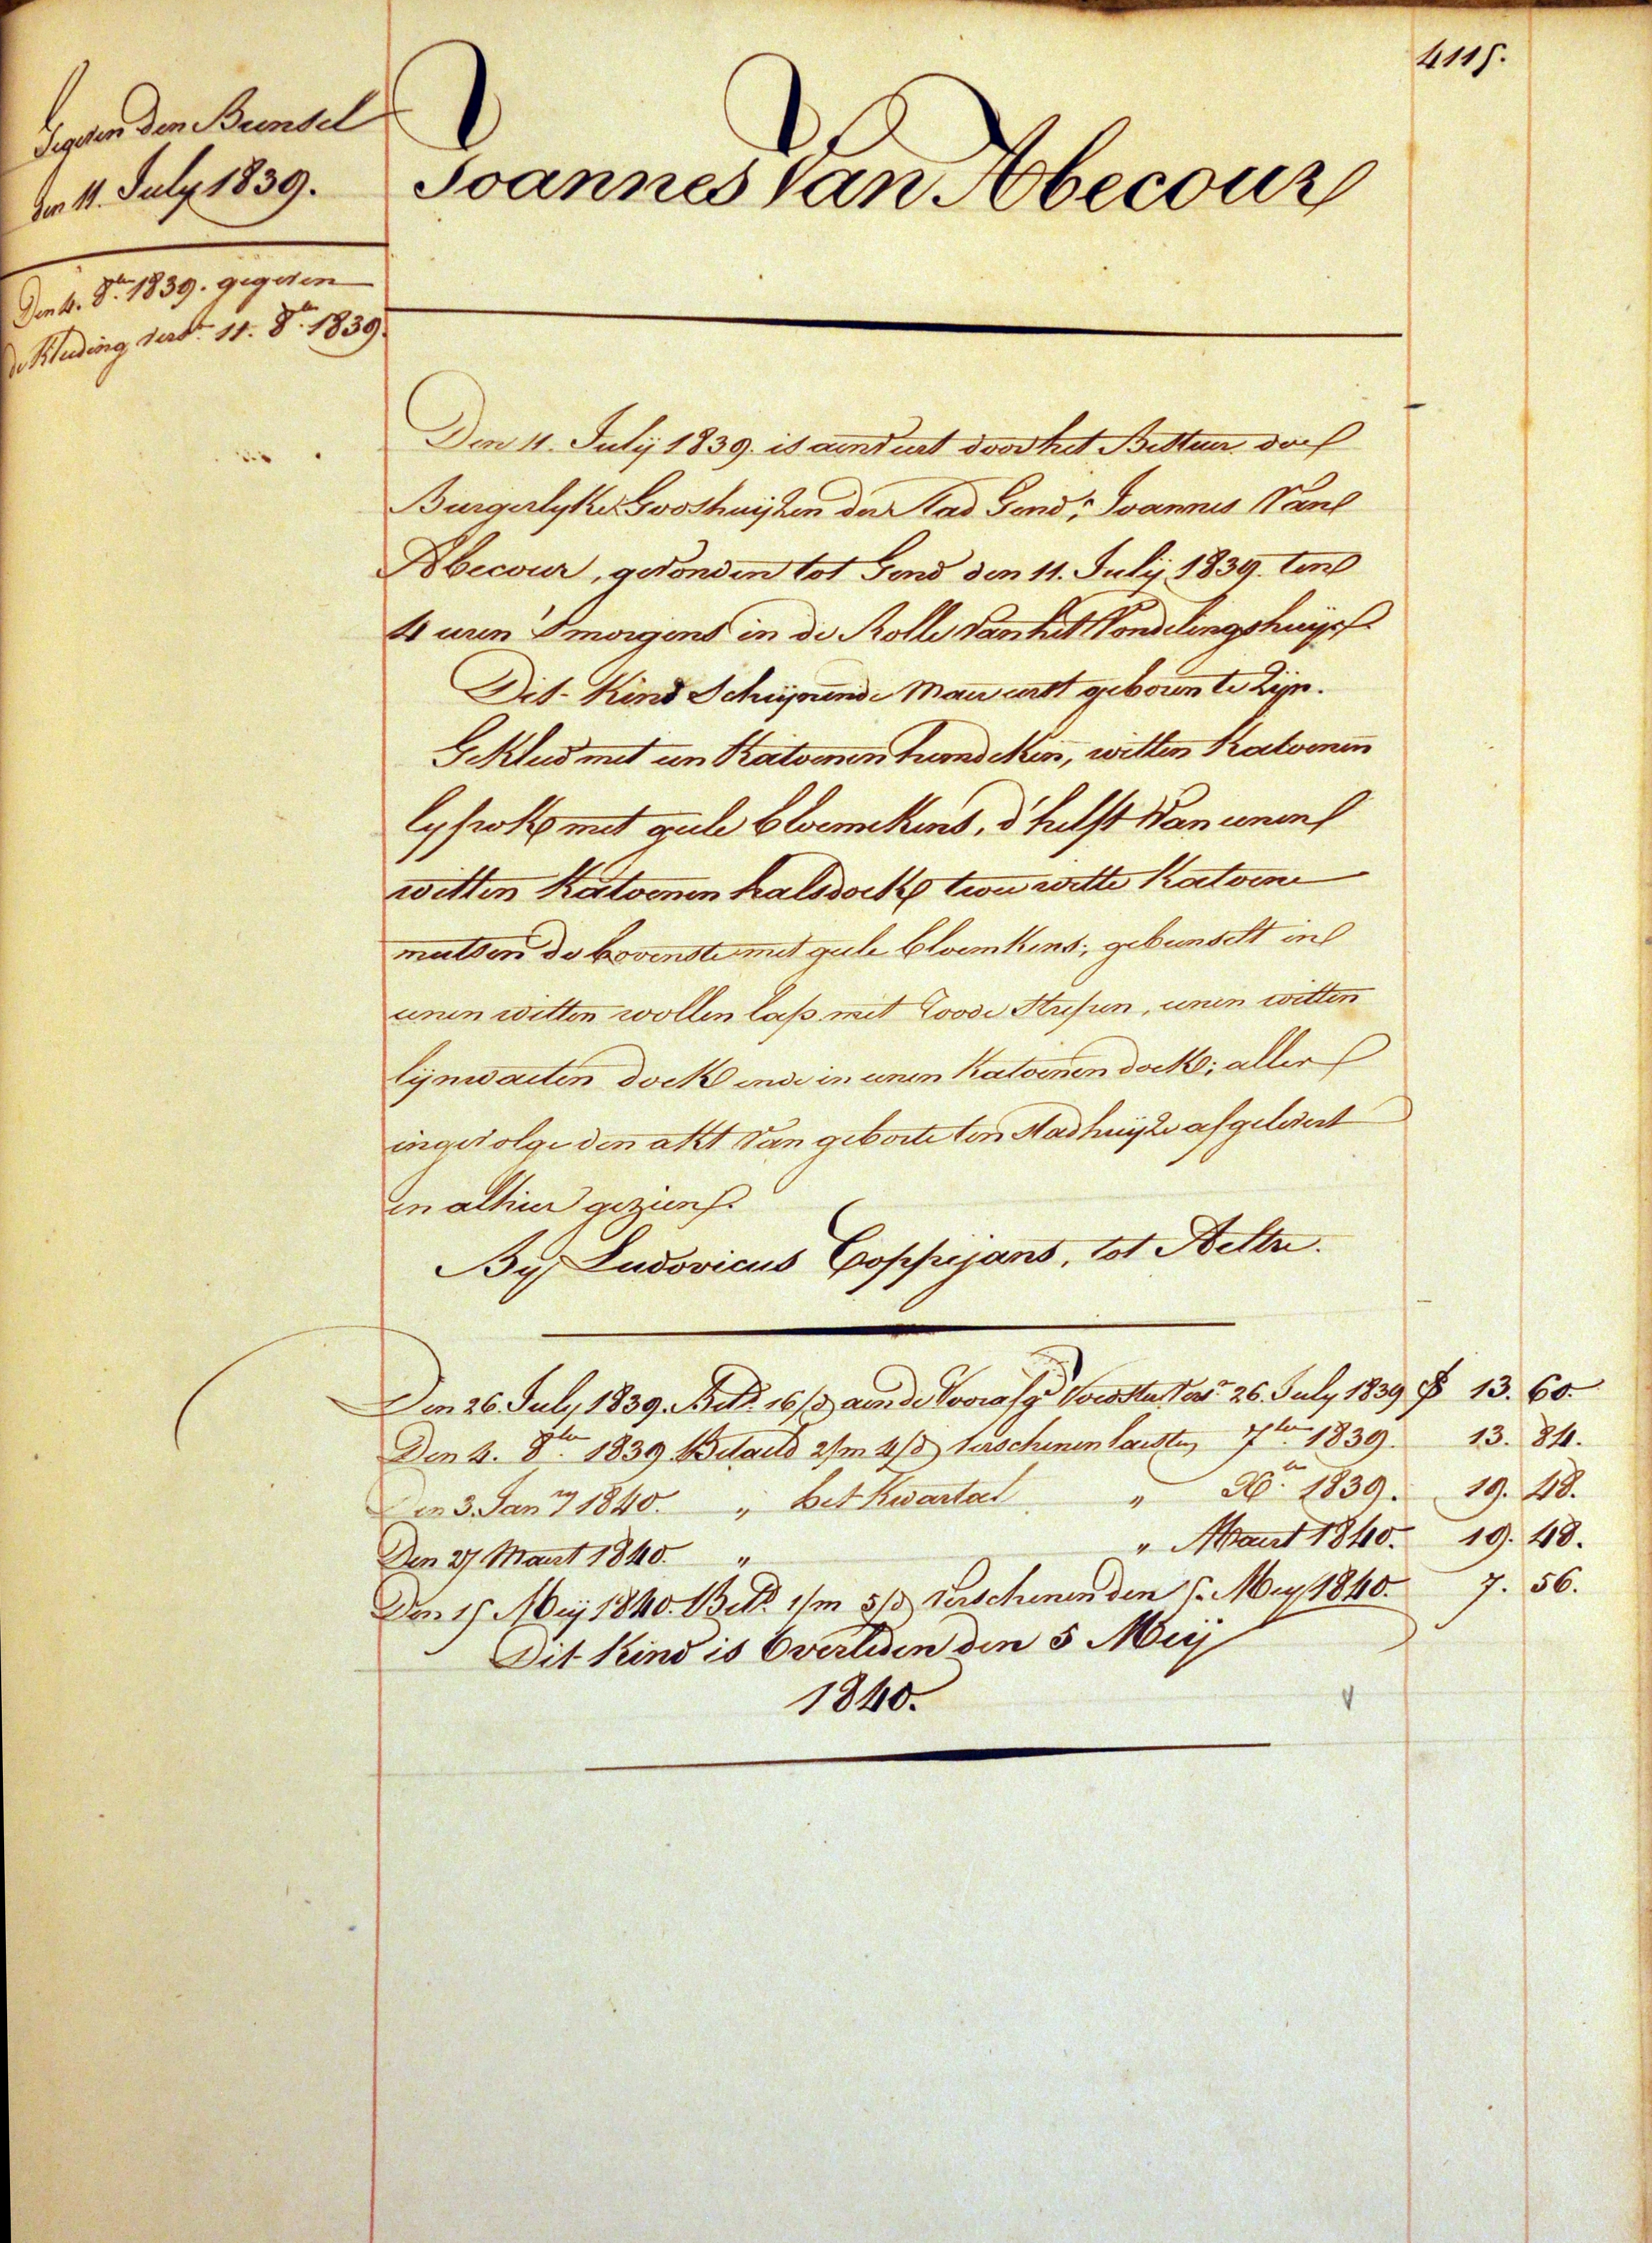 4115.
Gegeven den Bunsel
den 11. July 1839.
Joannes Van Abecour
Den 4. 8.bre 1839. gegeven
de Kleeding verst. 11. 8.bre 1839.
Den 11. Julij 1839. is aenveert door het Bestuer der
Burgerlyke Godshuijsen der Stad Gend, Joannes Van
Abecour, gevonden tot Gend den 11. Julij 1839. ten
4 uren 's morgens in de Rolle van het Vondelingshuijs.
Dit Kind Schijnende Maer eerst geboren te Zijn.
Gekleed met een Katoenen hemdeken, witten Katoenen
lyfrok met geele bloemekens, d'helft Van eenen
witten Katoenen halsdoek, twee witte Katoene
mutsen de bovenste met geele bloemkens; gebunselt in
eenen witten wollen lap met roode Strepen, eenen witten
lijnwaeten doek ende in eenen Katoenen doek; alles
ingevolge den akt Van geboorte ten Stadhuijze afgelevert
en alhier gezien.
By Ludovicus Coppejans, tot Aeltre.
Den 26. July 1839. Bet.d 16/d aen de Voorasg Voedster Verst 26. July 1839 F 13. 60.
Den 4. 8.bre 1839 Betaeld 2/m 4/d verschenen laesten 7bre 1839. 13. 84.
Den 3. Jan.ry 1840. " het Kwartael " Xb.re 1839. 19. 48.
Den 27 Maert 1840. " " Maert 1840. 19. 48.
Den 15 Meij 1840. Bet.d 1/m 5/d verschenen den 5. Mey 1840. 7. 56.
Dit Kind is Overleden den 5 Meij
1840.